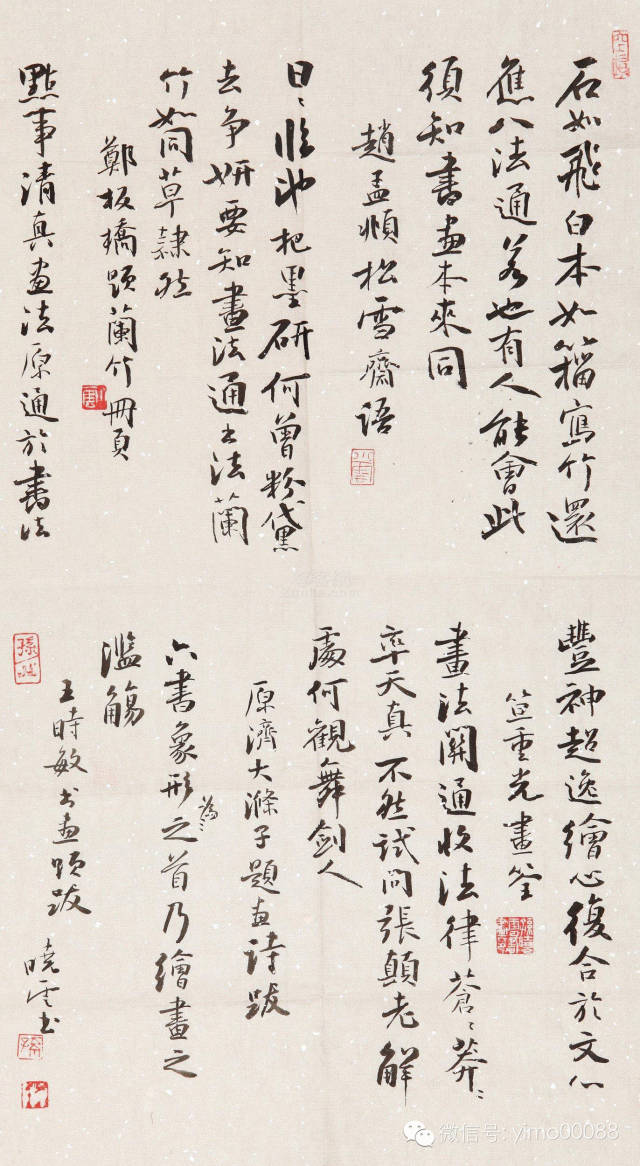 石如飛白本如籀寫竹還
應八法通若也有人能會此
須知書畫本來同
趙孟頫松雪齋語
日〻臨池把墨研何曾粉黛
去爭妍要知畫法通書法蘭
竹如同草隸然
鄭板橋題蘭竹冊頁
點事清真畫法原通於書法
豐神超逸繪心復合於文心
笪重光畫筌
畫法關通收法律蒼〻莽〻
率天真不然試問張顛老解
處何觀舞劍人
原濟大滌子題畫詩跋
六書象形為之首乃繪畫之
濫觴
王時敏書畫題跋
曉雲書
微信号: yimo00088